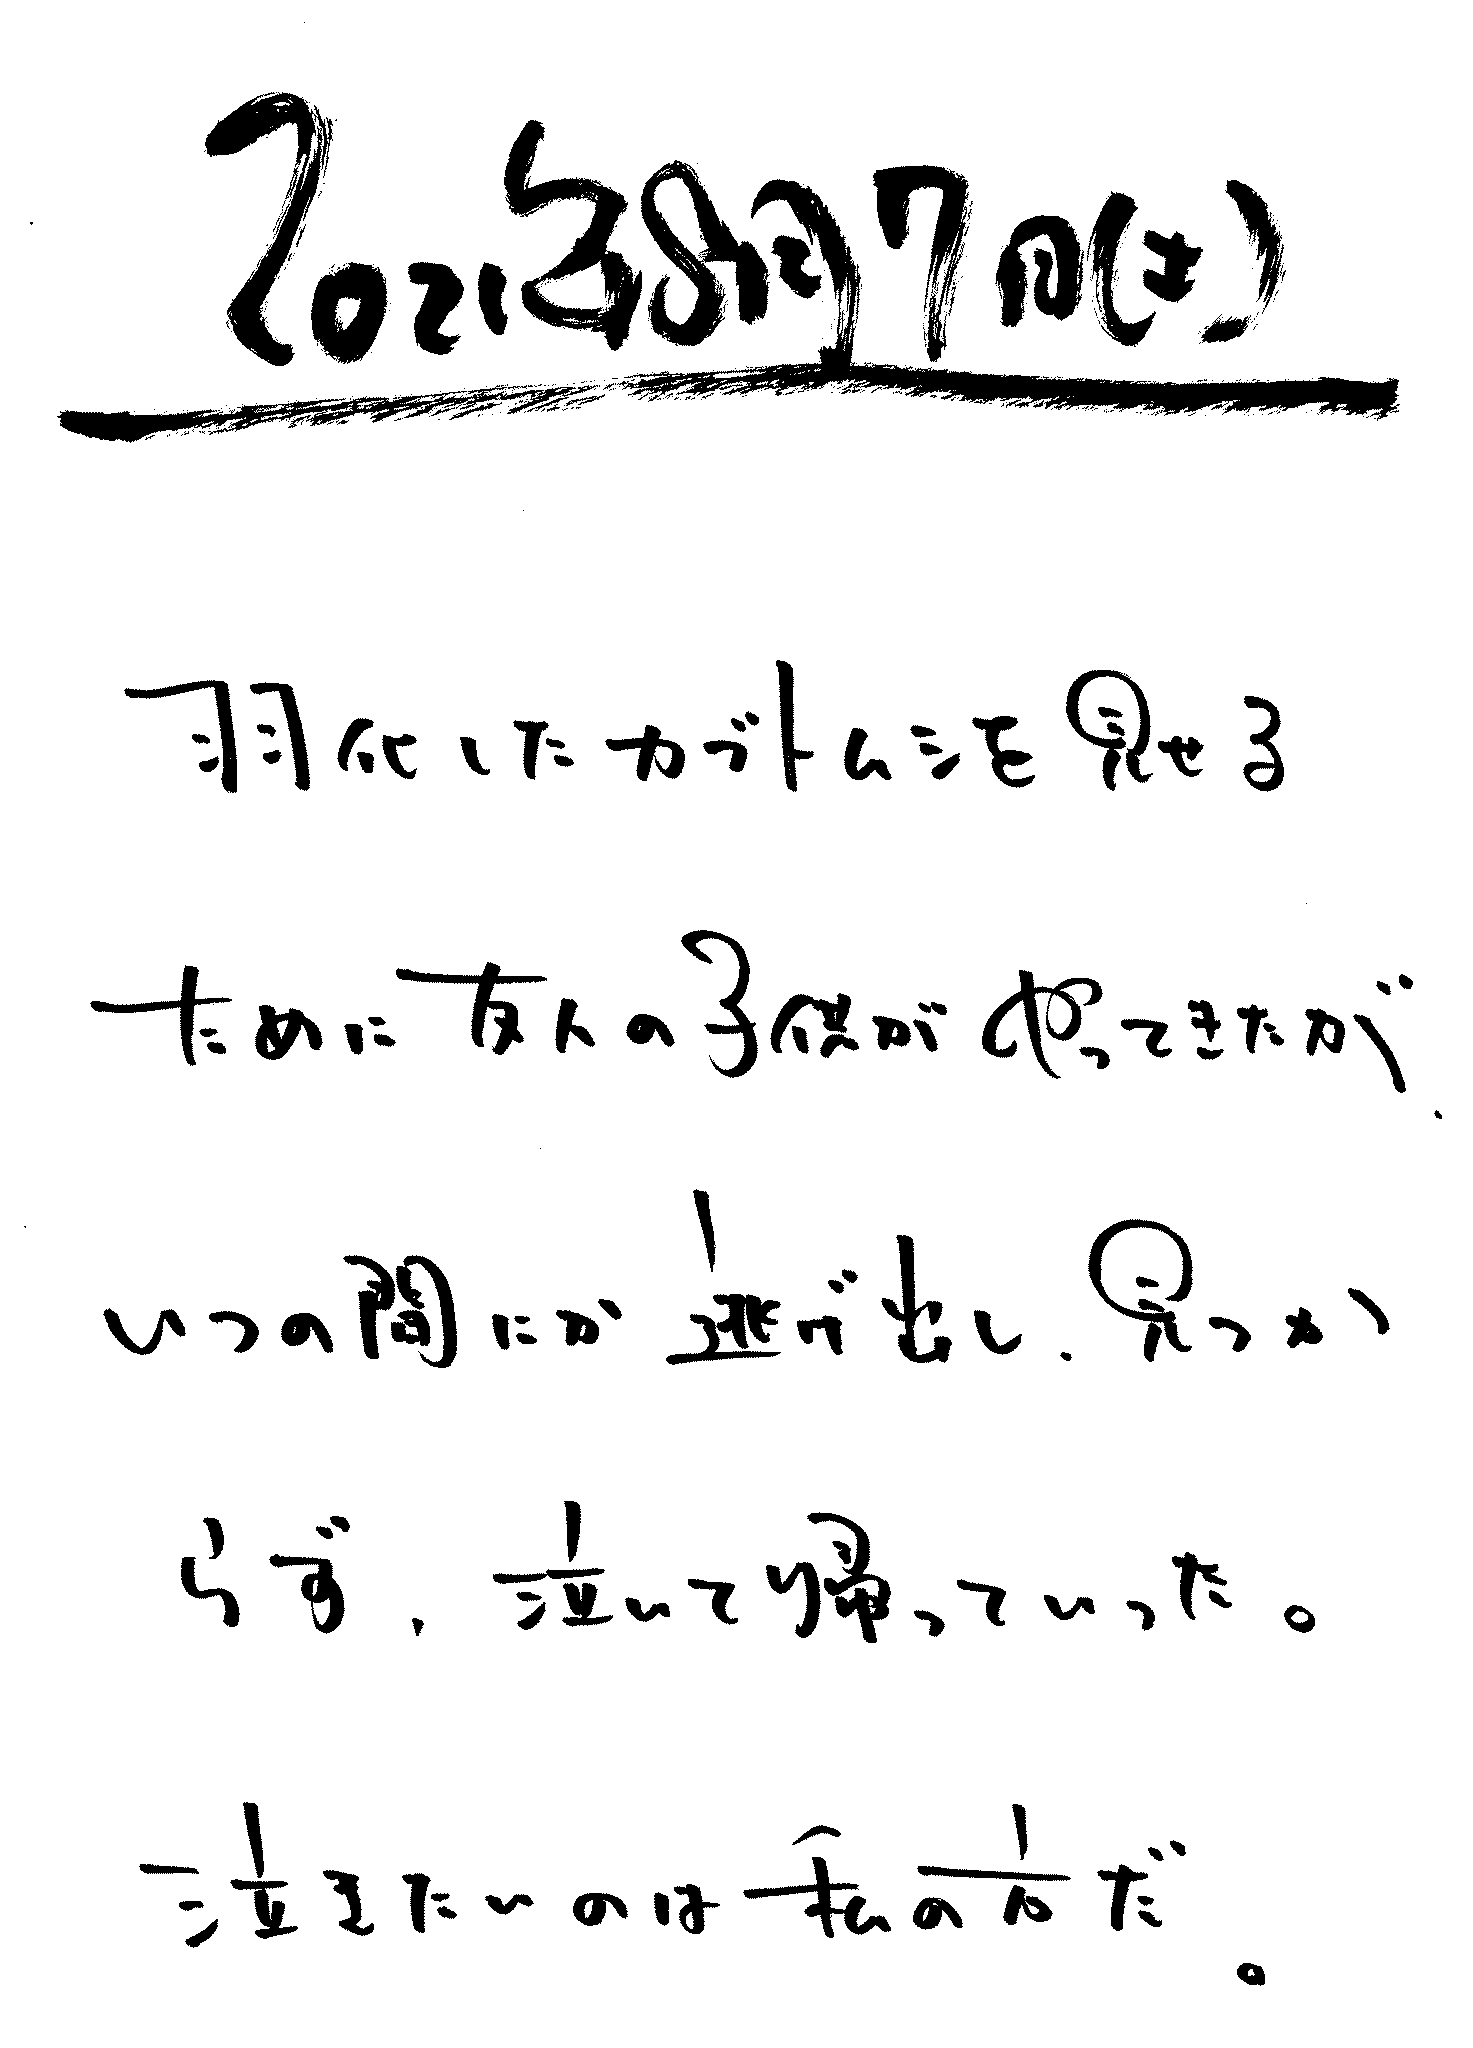 2021年8月7日(土)
羽化したカブトムシを見せる
ために友人の子供がやってきたが、
いつの間にか逃げ出し、見つか
らず、泣いて帰っていった。
泣きたいのは私の方だ。